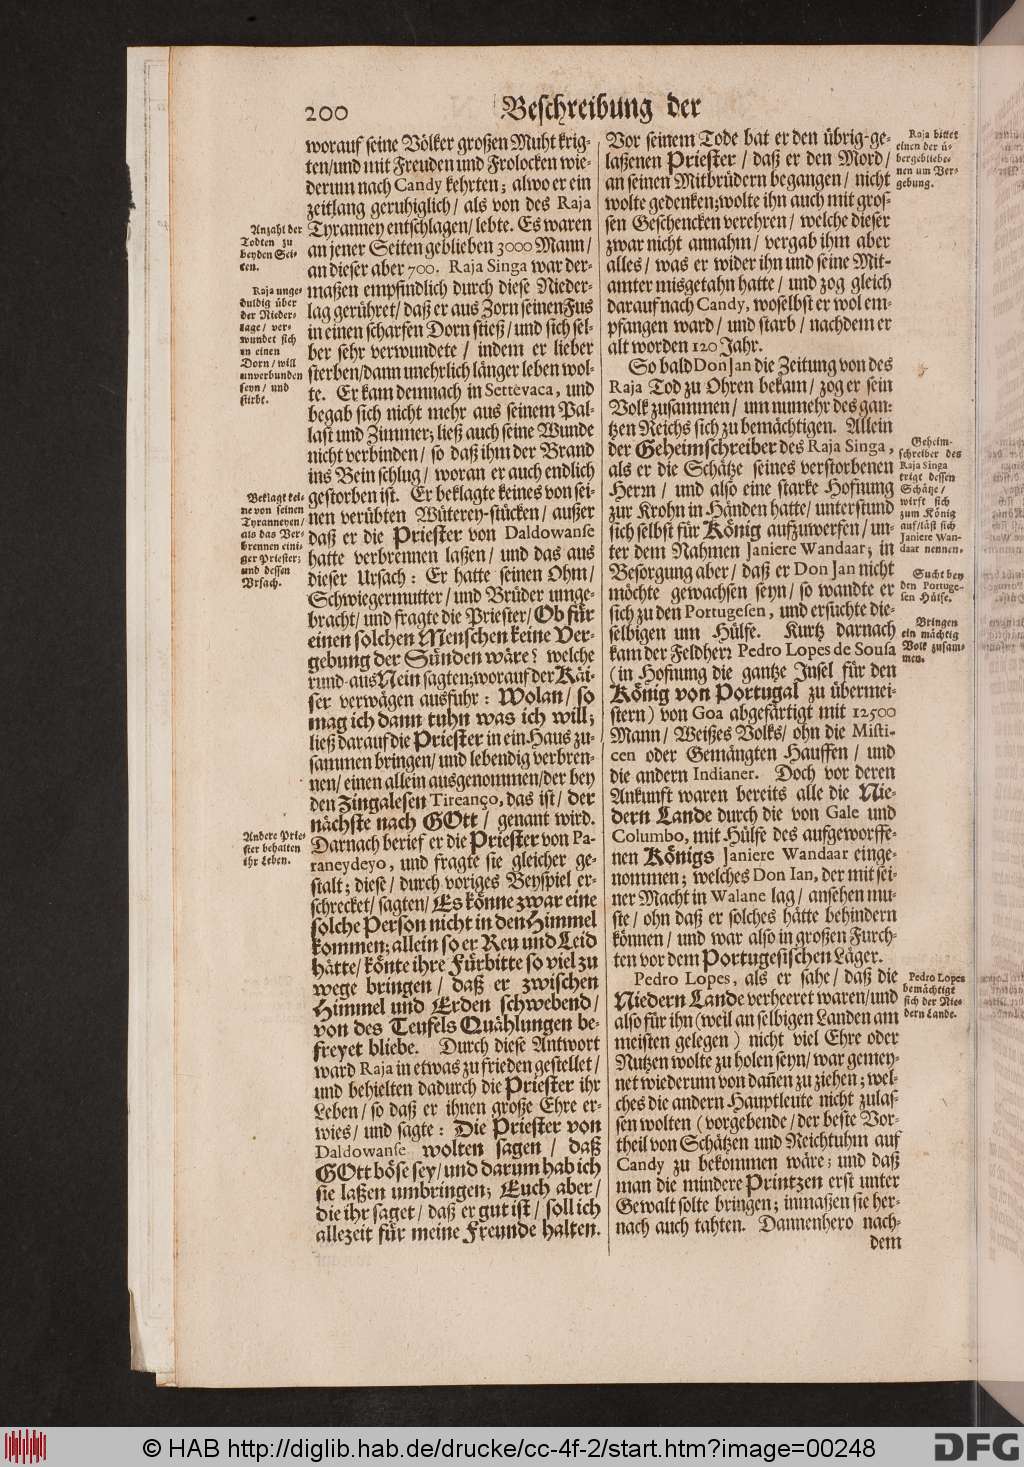 200
Beschreibung der
worauf seine Völker großen Muht krig-
ten/und mit Freuden und Frolocken wie-
derum nach Candy kehrten; alwo er ein
zeitlang geruhiglich/ als von des Raja
Tyranney entschlagen/ lebte. Es waren
an jener Seiten geblieben 3000 Mann/
an dieser aber 700. Raja Singa war der-
maßen empfindlich durch diese Nieder-
lag gerühret/ daß er aus Zorn seinen Fus
in einen scharfen Dorn stieß/ und sich sel-
ber sehr verwundete/ indem er lieber
sterben/dann unehrlich länger leben wol-
te. Er kam demnach in Settevaca, und
begab sich nicht mehr aus seinem Pal-
last und Zimmer; ließ auch seine Wunde
nicht verbinden/ so daß ihm der Brand
ins Bein schlug/ woran er auch endlich
gestorben ist. Er beklagte keines von sei-
nen verübten Wüterey-stücken/ außer
daß er die Priester von Daldowanse
hatte verbrennen laßen/ und das aus
dieser Ursach: Er hatte seinen Ohm/
Schwiegermutter/ und Brüder umge-
bracht/ und fragte die Priester/ Ob für
einen solchen Menschen keine Ver-
gebung der Sünden wäre? welche
rund-aus Nein sagten; worauf der Käi-
ser verwägen ausfuhr: Wolan/ so
mag ich dann tuhn was ich will;
ließ darauf die Priester in ein Haus zu-
sammen bringen/ und lebendig verbren-
nen/ einen allein ausgenommen/der bey
den Zingalesen Tireanço, das ist/ der
nächste nach GOtt/ genant wird.
Darnach berief er die Priester von Pa-
raneydeyo, und fragte sie gleicher ge-
stalt; diese/ durch voriges Beyspiel er-
schrecket/ sagten/ Es könne zwar eine
solche Person nicht in den Himmel
kommen; allein so er Reu und Leid
hätte/ könte ihre Fürbitte so viel zu
wege bringen/ daß er zwischen
Himmel und Erden schwebend/
von des Teufels Quählungen be-
freyet bliebe. Durch diese Antwort
ward Raja in etwas zu frieden gestellet/
und behielten dadurch die Priester ihr
Leben/ so daß er ihnen große Ehre er-
wies/ und sagte: Die Priester von
Daldowanse wolten sagen/ daß
GOtt böse sey/ und darum hab ich
sie laßen umbringen; Euch aber/
die ihr saget/ daß er gut ist/ soll ich
allezeit für meine Freunde halten.
Anzahl der
Todten zu
beyden Sei-
ten.
Raja unge-
duldig über
der Nieder-
lage/ ver-
wundet sich
in einen
Dorn/ will
unverbunden
seyn/ und
stirbt.
Beklagt kei-
ne von seinen
Tyranneyen/
als das Ver-
brennen eini-
ger Priester;
und dessen
Ursach.
Andere Prie-
ster behalten
ihr Leben.
Vor seinem Tode bat er den übrig-ge-
laßenen Priester/ daß er den Mord/
an seinen Mitbrüdern begangen/ nicht
wolte gedenken; wolte ihn auch mit gros-
sen Geschencken verehren/ welche dieser
zwar nicht annahm/ vergab ihm aber
alles/ was er wider ihn und seine Mit-
amter misgetahn hatte/ und zog gleich
darauf nach Candy, woselbst er wol em-
pfangen ward/ und starb/ nachdem er
alt worden 120 Jahr.
So bald Don Jan die Zeitung von des
Raja Tod zu Ohren bekam/ zog er sein
Volk zusammen/ um numehr des gan-
tzen Reichs sich zu bemächtigen. Allein
der Geheimschreiber des Raja Singa,
als er die Schätze seines verstorbenen
Herrn/ und also eine starke Hofnung
zur Krohn in Händen hatte/ unterstund
sich selbst für König aufzuwerfen/ un-
ter dem Nahmen Janiere Wandaar; in
Besorgung aber/ daß er Don Jan nicht
möchte gewachsen seyn/ so wandte er
sich zu den Portugesen, und ersuchte die-
selbigen um Hülfe. Kurtz darnach
kam der Feldherr Pedro Lopes de Sousa
(in Hofnung die gantze Insel für den
König von Portugal zu übermei-
stern) von Goa abgefärtigt mit 12500
Mann/ Weißes Volks/ ohn die Misti-
cen oder Gemängten Hauffen/ und
die andern Indianer. Doch vor deren
Ankunft waren bereits alle die Nie-
dern Lande durch die von Gale und
Columbo, mit Hülfe des aufgeworffe-
nen Königs Janiere Wandaar einge-
nommen; welches Don Ian, der mit sei-
ner Macht in Walane lag/ ansehen mu-
ste/ ohn daß er solches hätte behindern
können/ und war also in großen Furch-
ten vor dem Portugesischen Läger.
Pedro Lopes, als er sahe/ daß die
Niedern Lande verheeret waren/und
also für ihn (weil an selbigen Landen am
meisten gelegen) nicht viel Ehre oder
Nutzen wolte zu holen seyn/ war gemey-
net wiederum von dañen zu ziehen; wel-
ches die andern Hauptleute nicht zulas-
sen wolten (vorgebende/ der beste Vor-
theil von Schätzen und Reichtuhm auf
Candy zu bekommen wäre; und daß
man die mindere Printzen erst unter
Gewalt solte bringen; inmaßen sie her-
nach auch tahten. Dannenhero nach-
dem
Raja bittet
einen der ü-
bergebliebe-
nen um Ver-
gebung.
Geheim-
schreiber des
Raja Singa
krigt dessen
Schätze/
wirft sich
zum König
auf/läst sich
Janiere Wan-
daar nennen.
Sucht bey
den Portuge-
sen Hülfe.
Bringen
ein mächtig
Volk zusam-
men.
Pedro Lopes
bemächtigt
sich der Nie-
dern Lande.
© HAB http://diglib.hab.de/drucke/cc-4f-2/start.htm?image=00248
DFG